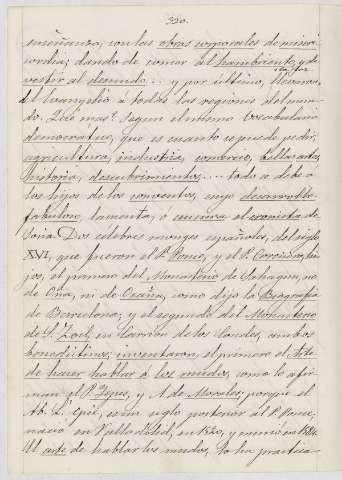 390.
enseñanza, con las obras corporales de miseri-
cordia; dando de comer al hambriento, y de
vestir al desnudo.... y por último, llevaron
el Evangelio á todas las regiones del mun-
do. ¿Qué mas? Segun el mismo vocabulario
democrático, que es cuanto se puede pedir,
agricultura, industria, comercio, bellas artes,
historia, descubrimientos.... todo se debe á
los hijos de los conventos, cuyo desarrollo
fabuloso, lamenta, ó censura el cronista de
Soria. Dos célebres monges españoles, del siglo
XVI, que fueron el P. Ponce, y el P.
jos, el primero del Monasterio de Sahagun, no
de Oña, ni de Ocaña, como dijo la Biografía
de Barcelona; y el segundo del Monasterio
de S. Zoil, en Carrion de los Condes, ambos
benedictinos, inventaron, el primero el Arte
de hacer hablar á los mudos, como lo afir-
man el P. Yepes, y A. de Morales; porque el
Ab. L' Epée, es un siglo posterior al P. Ponce,
nació en Valladolid, en 1520, y murió en 1584.
El arte de hablar los mudos, lo ha practica-